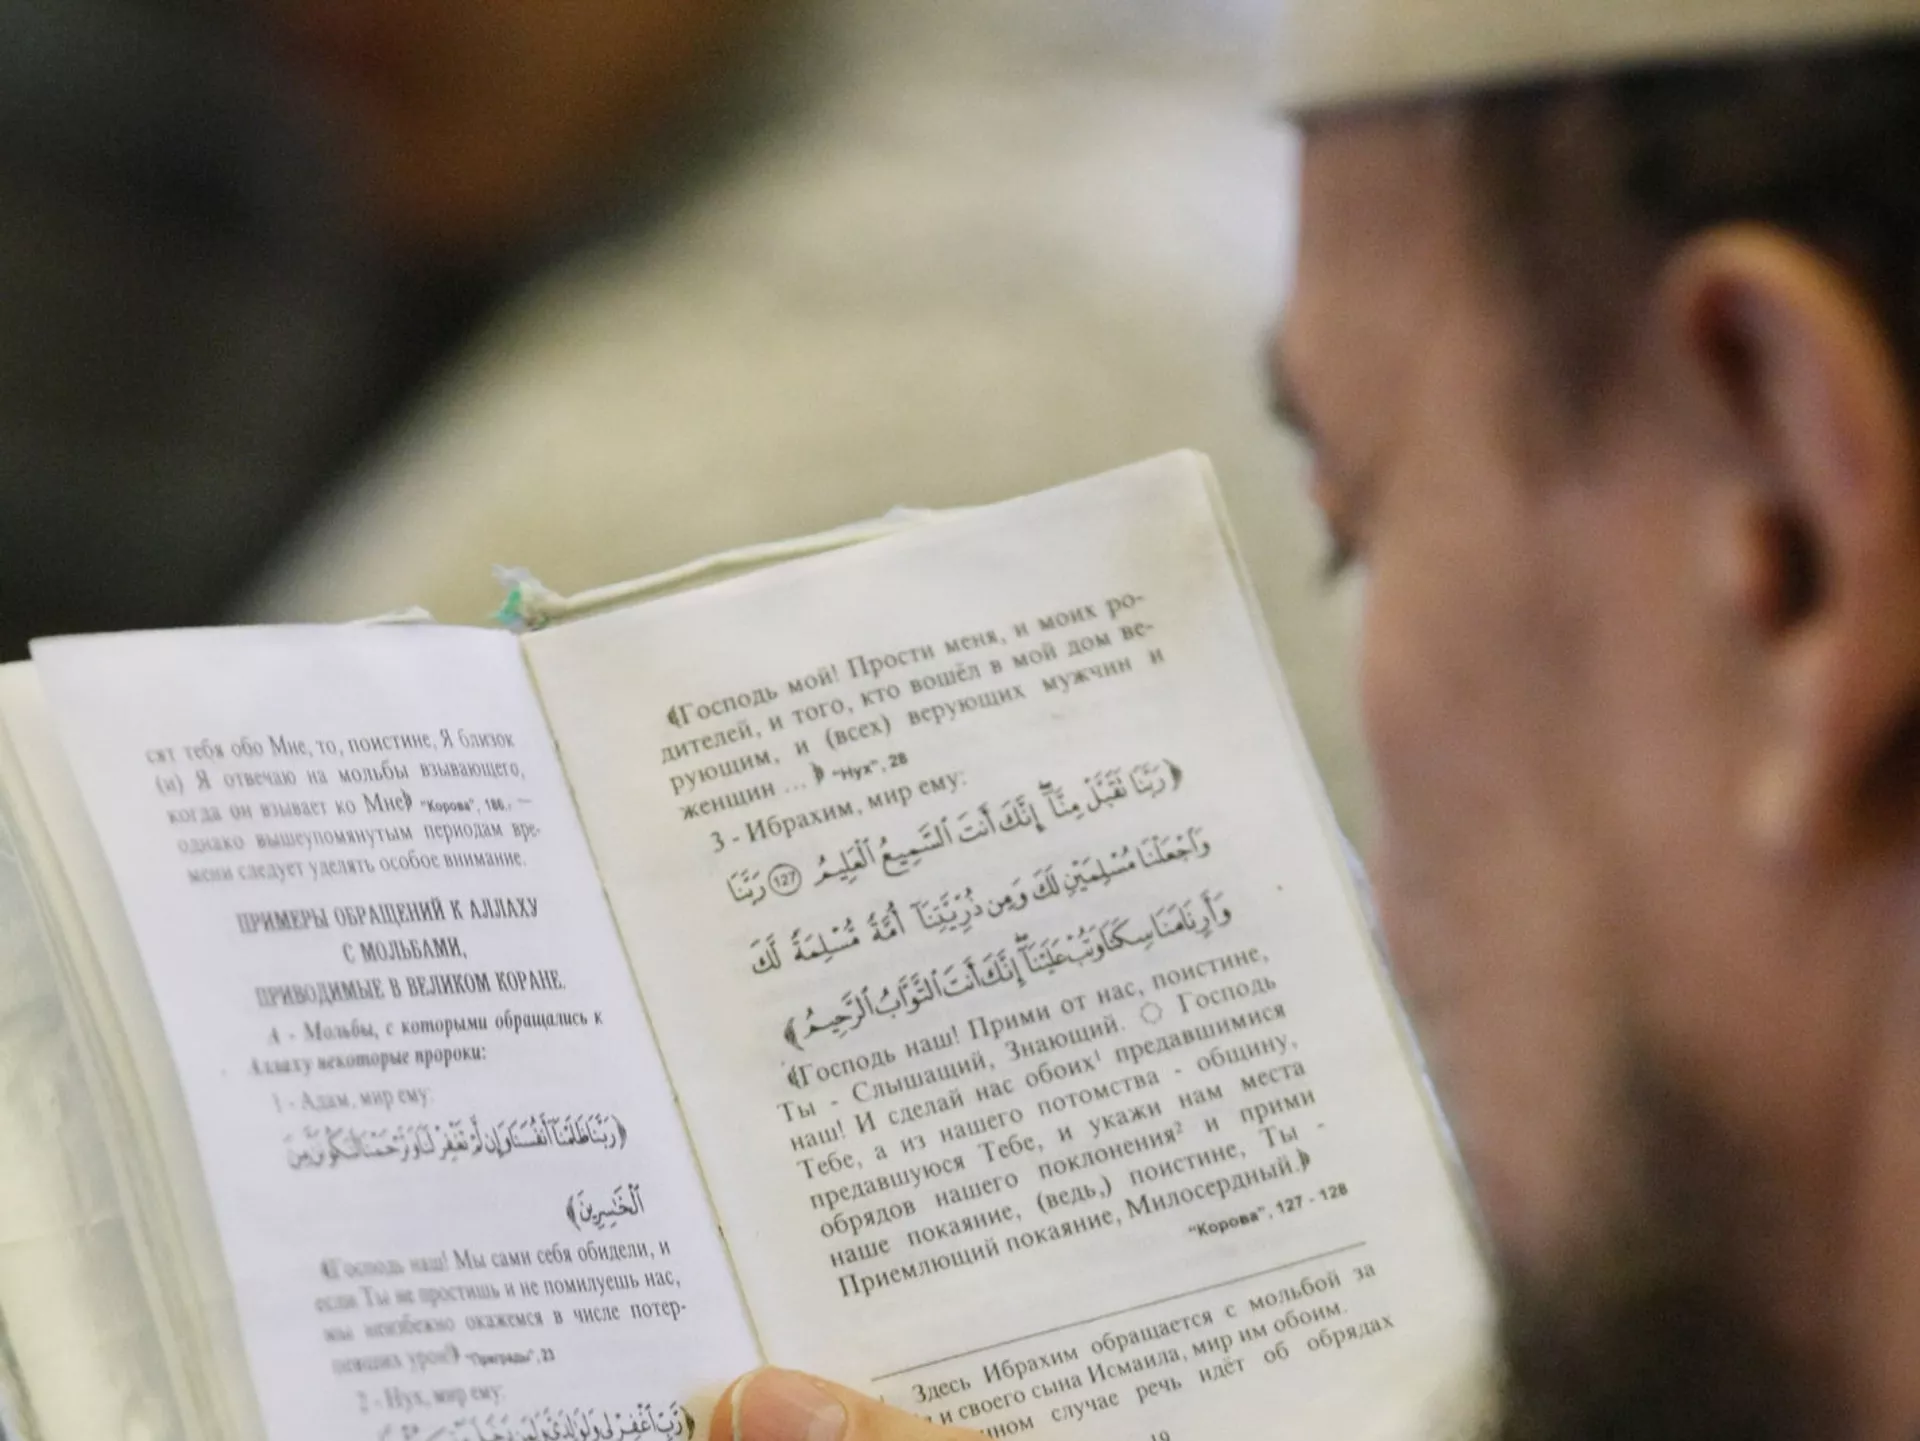 сят тебя обо Мне, то, поистине, Я близок
(и) Я отвечаю на мольбы взывающего,
когда он взывает ко Мне﴿ "Корова", 186, —
однако вышеупомянутым периодам вре-
мени следует уделять особое внимание.
ПРИМЕРЫ ОБРАЩЕНИЙ К АЛЛАХУ
С МОЛЬБАМИ,
ПРИВОДИМЫЕ В ВЕЛИКОМ КОРАНЕ.
А - Мольбы, с которыми обращались к
Аллаху некоторые пророки:
1 - Адам, мир ему:
﴿رَبَّنَا ظَلَمْنَا أَنفُسَنَا وَإِن لَّمْ تَغْفِرْ لَنَا وَتَرْحَمْنَا لَنَكُونَنَّ مِنَ
ٱلْخَٰسِرِينَ﴾
﴾Господь наш! Мы сами себя обидели, и
если Ты не простишь и не помилуешь нас,
мы неизбежно окажемся в числе потер-
певших урон﴿ "Преграды", 23
2 - Нух, мир ему:
﴿رَّبِّ ٱغْفِرْ لِى وَلِوَٰلِدَىَّ وَلِمَن دَخَلَ
﴾Господь мой! Прости меня, и моих ро-
дителей, и того, кто вошёл в мой дом ве-
рующим, и (всех) верующих мужчин и
женщин ...﴿ "Нух", 28
3 - Ибрахим, мир ему:
﴿رَبَّنَا تَقَبَّلْ مِنَّآ ۖ إِنَّكَ أَنتَ ٱلسَّمِيعُ ٱلْعَلِيمُ (127) رَبَّنَا
وَٱجْعَلْنَا مُسْلِمَيْنِ لَكَ وَمِن ذُرِّيَّتِنَآ أُمَّةً مُّسْلِمَةً لَّكَ
وَأَرِنَا مَنَاسِكَنَا وَتُبْ عَلَيْنَآ ۖ إِنَّكَ أَنتَ ٱلتَّوَّابُ ٱلرَّحِيمُ﴾
﴾Господь наш! Прими от нас, поистине,
Ты - Слышащий, Знающий. ۝ Господь
наш! И сделай нас обоих¹ предавшимися
Тебе, а из нашего потомства - общину,
предавшуюся Тебе, и укажи нам места
обрядов нашего поклонения² и прими
наше покаяние, (ведь,) поистине, Ты -
Приемлющий покаяние, Милосердный.﴿
"Корова", 127 - 128
Здесь Ибрахим обращается с мольбой за
и своего сына Исмаила, мир им обоим.
случае речь идёт об обрядах
19